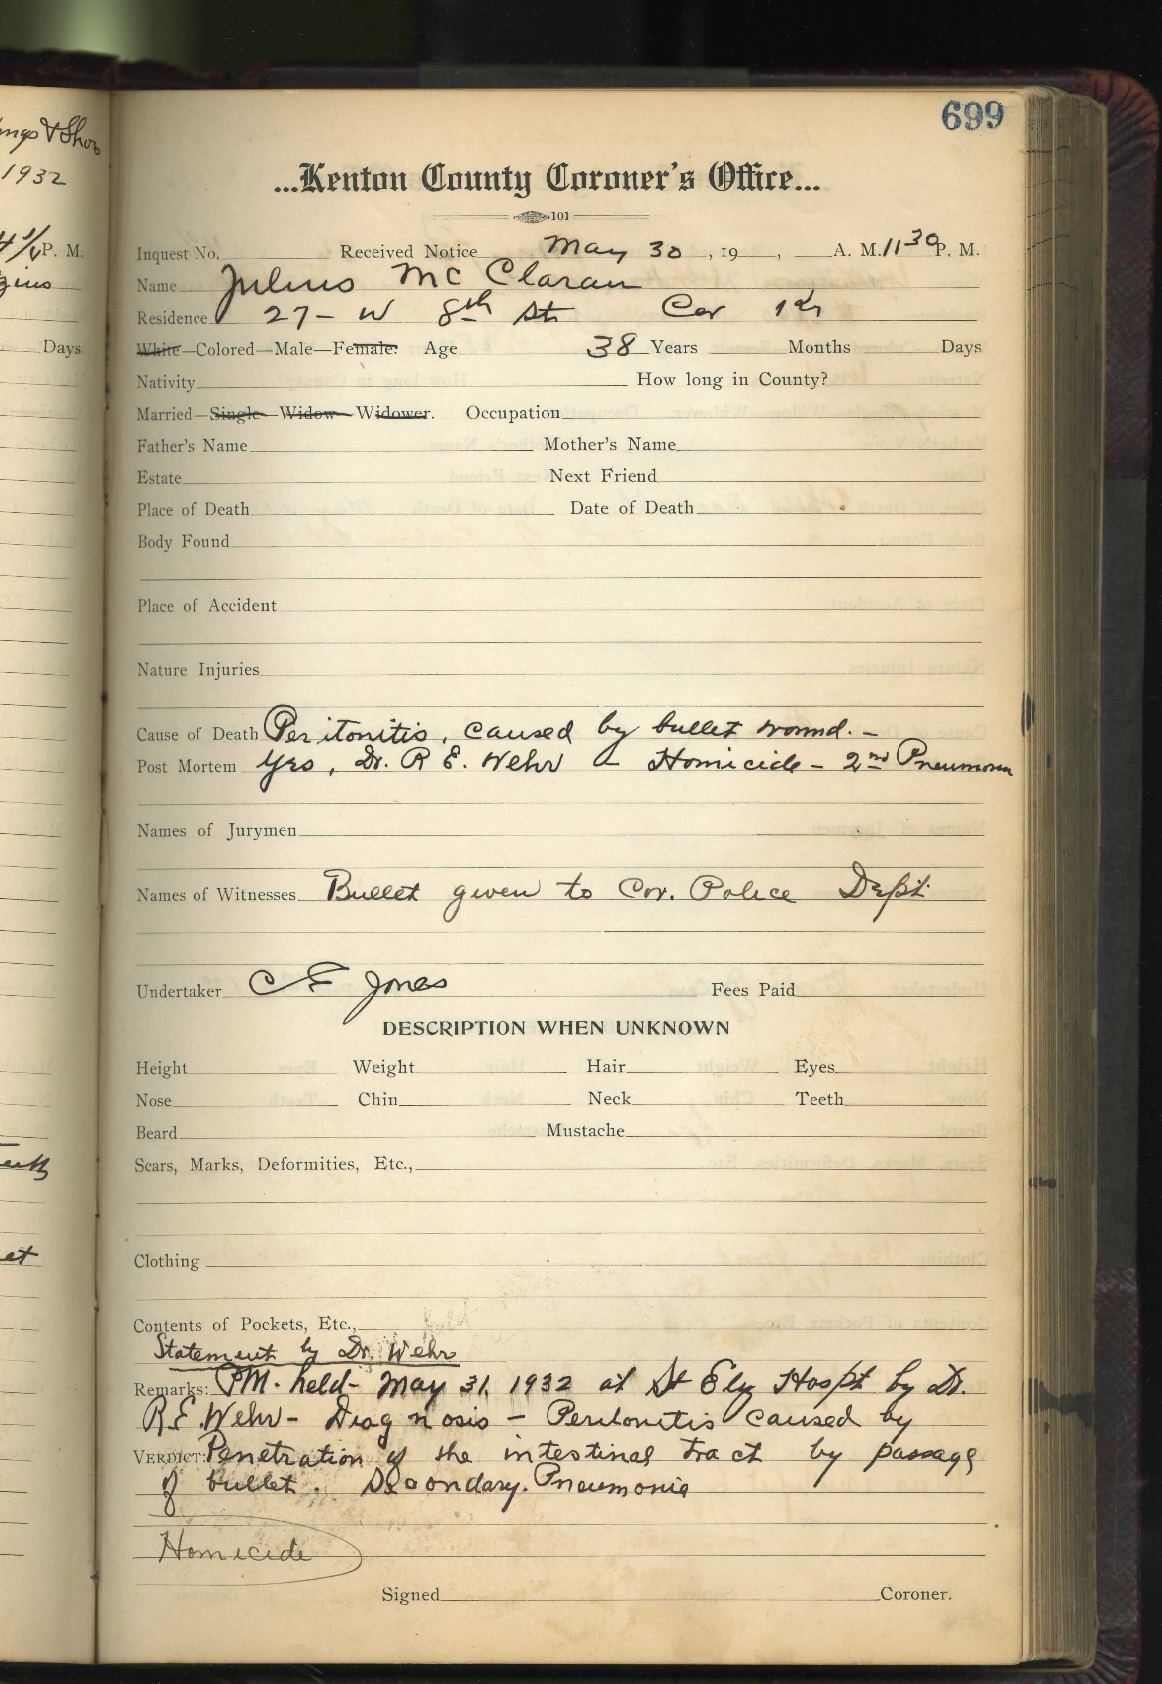 699
...Kenton County Coroner's Office...
101
Inquest No. Received Notice May 30, 19 , A. M. 11 30 P. M.
Name Julius Mc Claran
Residence 27 - W 8th St Cov
White—Colored—Male—Female: Age 38 Years Months Days
Nativity How long in County?
Married—Single—Widow—Widower. Occupation
Father's Name Mother's Name
Estate Next Friend
Place of Death Date of Death
Body Found
Place of Accident
Nature Injuries
Cause of Death Peritonitis, caused by bullet wound. -
Post Mortem Yes, Dr. R E. Wehr - Homicide - 2nd Pneumonia
Names of Jurymen
Names of Witnesses Bullet given to Cov. Police Dept.
Undertaker C F Jones Fees Paid
DESCRIPTION WHEN UNKNOWN
Height Weight Hair Eyes
Nose Chin Neck Teeth
Beard Mustache
Scars, Marks, Deformities, Etc.,
Clothing
Contents of Pockets, Etc.,
Statement by Dr. Wehr
Remarks: PM. held - May 31, 1932 at St Elz Hospt by Dr.
R.E. Wehr - Diagnosis - Peritonitis caused by
VERDICT: Penetration of the intestinal tract by passage
of bullet. Secondary. Pneumonia
Homicide
Signed Coroner.
1932
P. M.
Days
et